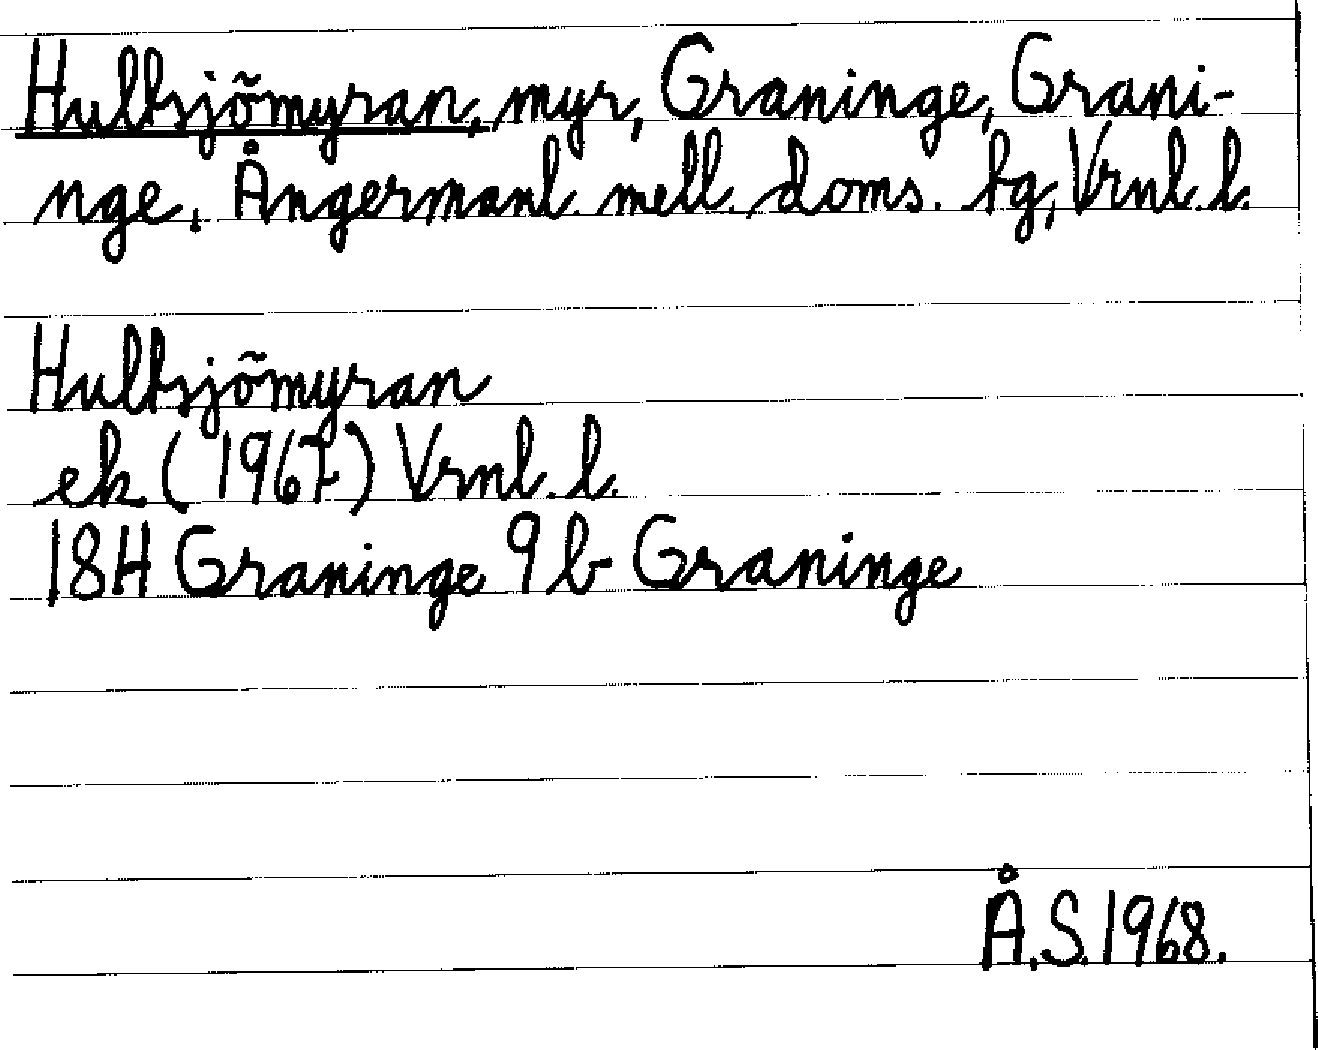 Hultsjömyran, myr, Graninge, Grani-
nge, Ångermanl. mell. doms. tg, Vrnl. l.
Hultsjömyran
ek (1967) Vrnl. l.
18H Graninge 9 b Graninge
Å.S. 1968.